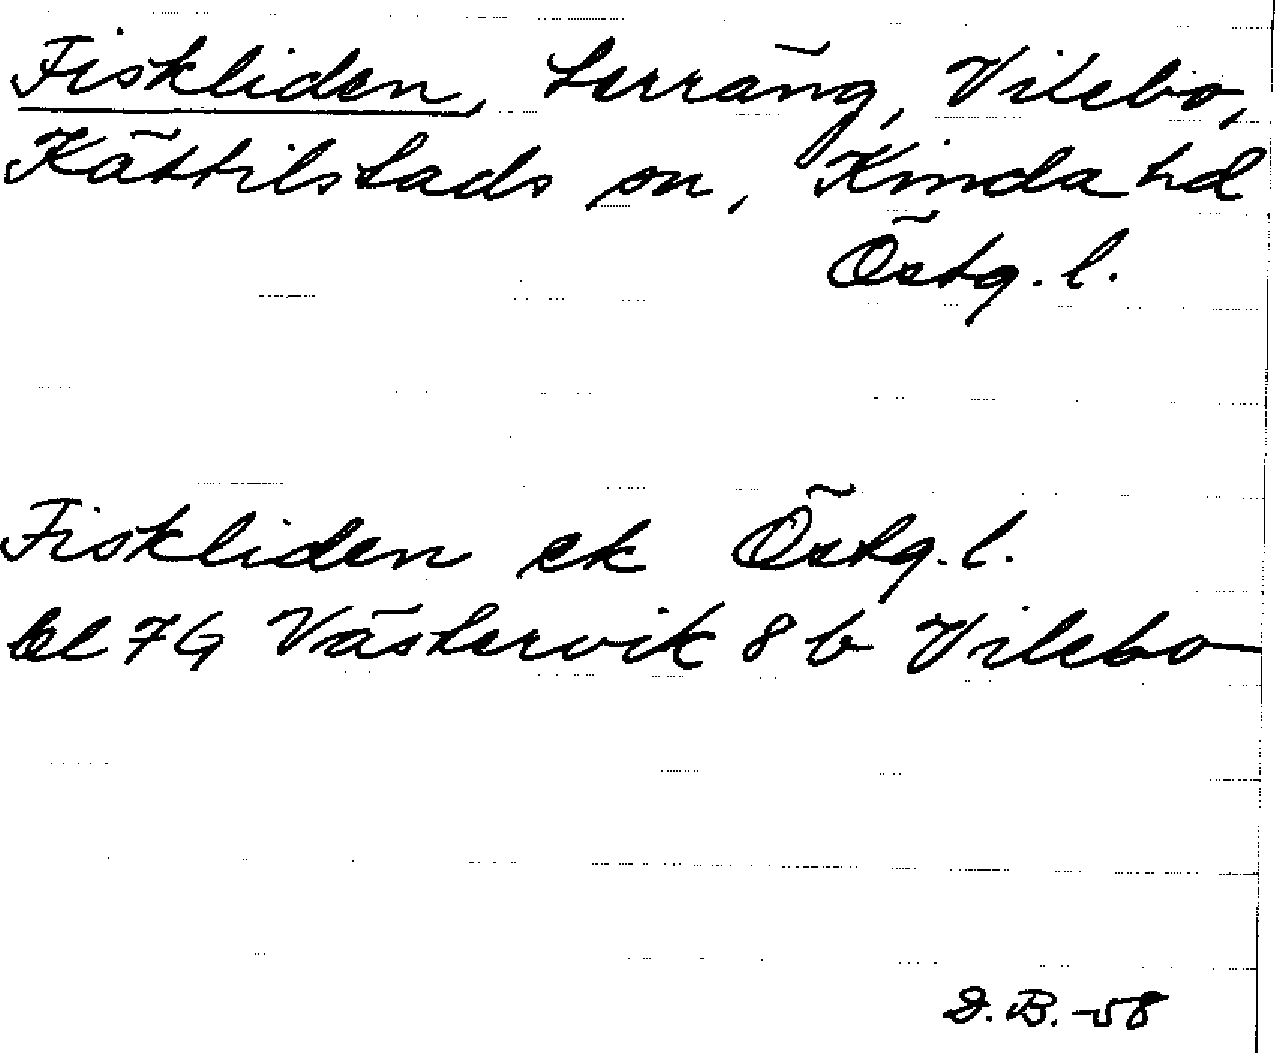 Fiskliden, terräng, Vilebo,
Kättilstads sn, Kinda hd
Östg. l.
Fiskliden ek Östg. l.
bl 7G Västervik 8 b Vilebo
D.B.-58